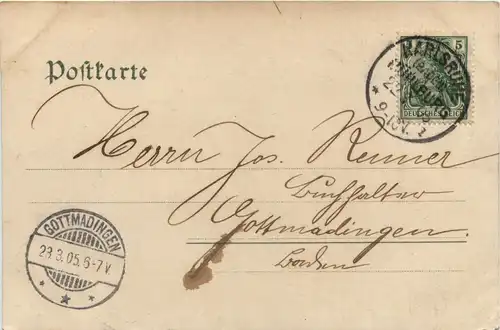 Postkarte
5
KARLSRUHE
9-10V.
DEUTSCHES REICH
Herrn Jos. Renner
Buchhalter
Gottmadingen.
Baden
GOTTMADINGEN
23.3.05.6-7V.